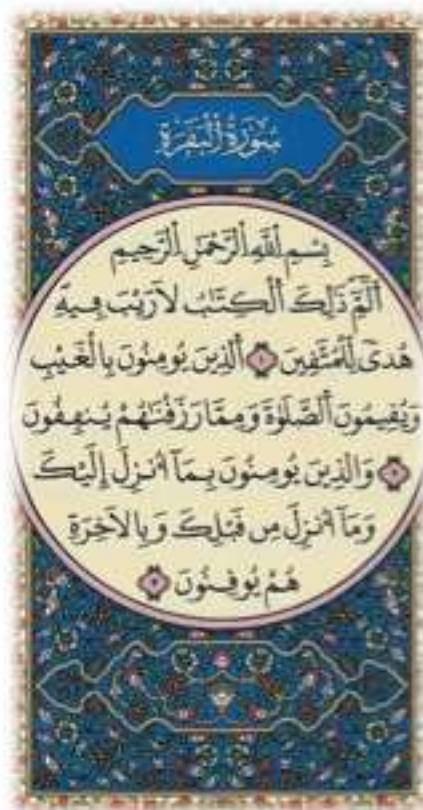 سُورَةُ الْبَقَرَةِ
بِسْمِ اِ۬للَّهِ اِ۬لرَّحْمَٰنِ اِ۬لرَّحِيمِ
أَلَٓمِّٓ ذَٰلِكَ اَ۬لْكِتَٰبُ لَا رَيْبَ فِيهِ
هُدىٗ لِّلْمُتَّقِينَ ١ اَ۬لذِينَ يُومِنُونَ بِالْغَيْبِ
وَيُقِيمُونَ اَ۬لصَّلَوٰةَ وَمِمَّا رَزَقْنَٰهُمْ يُنفِقُونَ
٢ وَالذِينَ يُومِنُونَ بِمَآ أُنزِلَ إِلَيْكَ
وَمَآ أُنزِلَ مِن قَبْلِكَ وَبِالَاخِرَةِ
هُمْ يُوقِنُونَ ٣